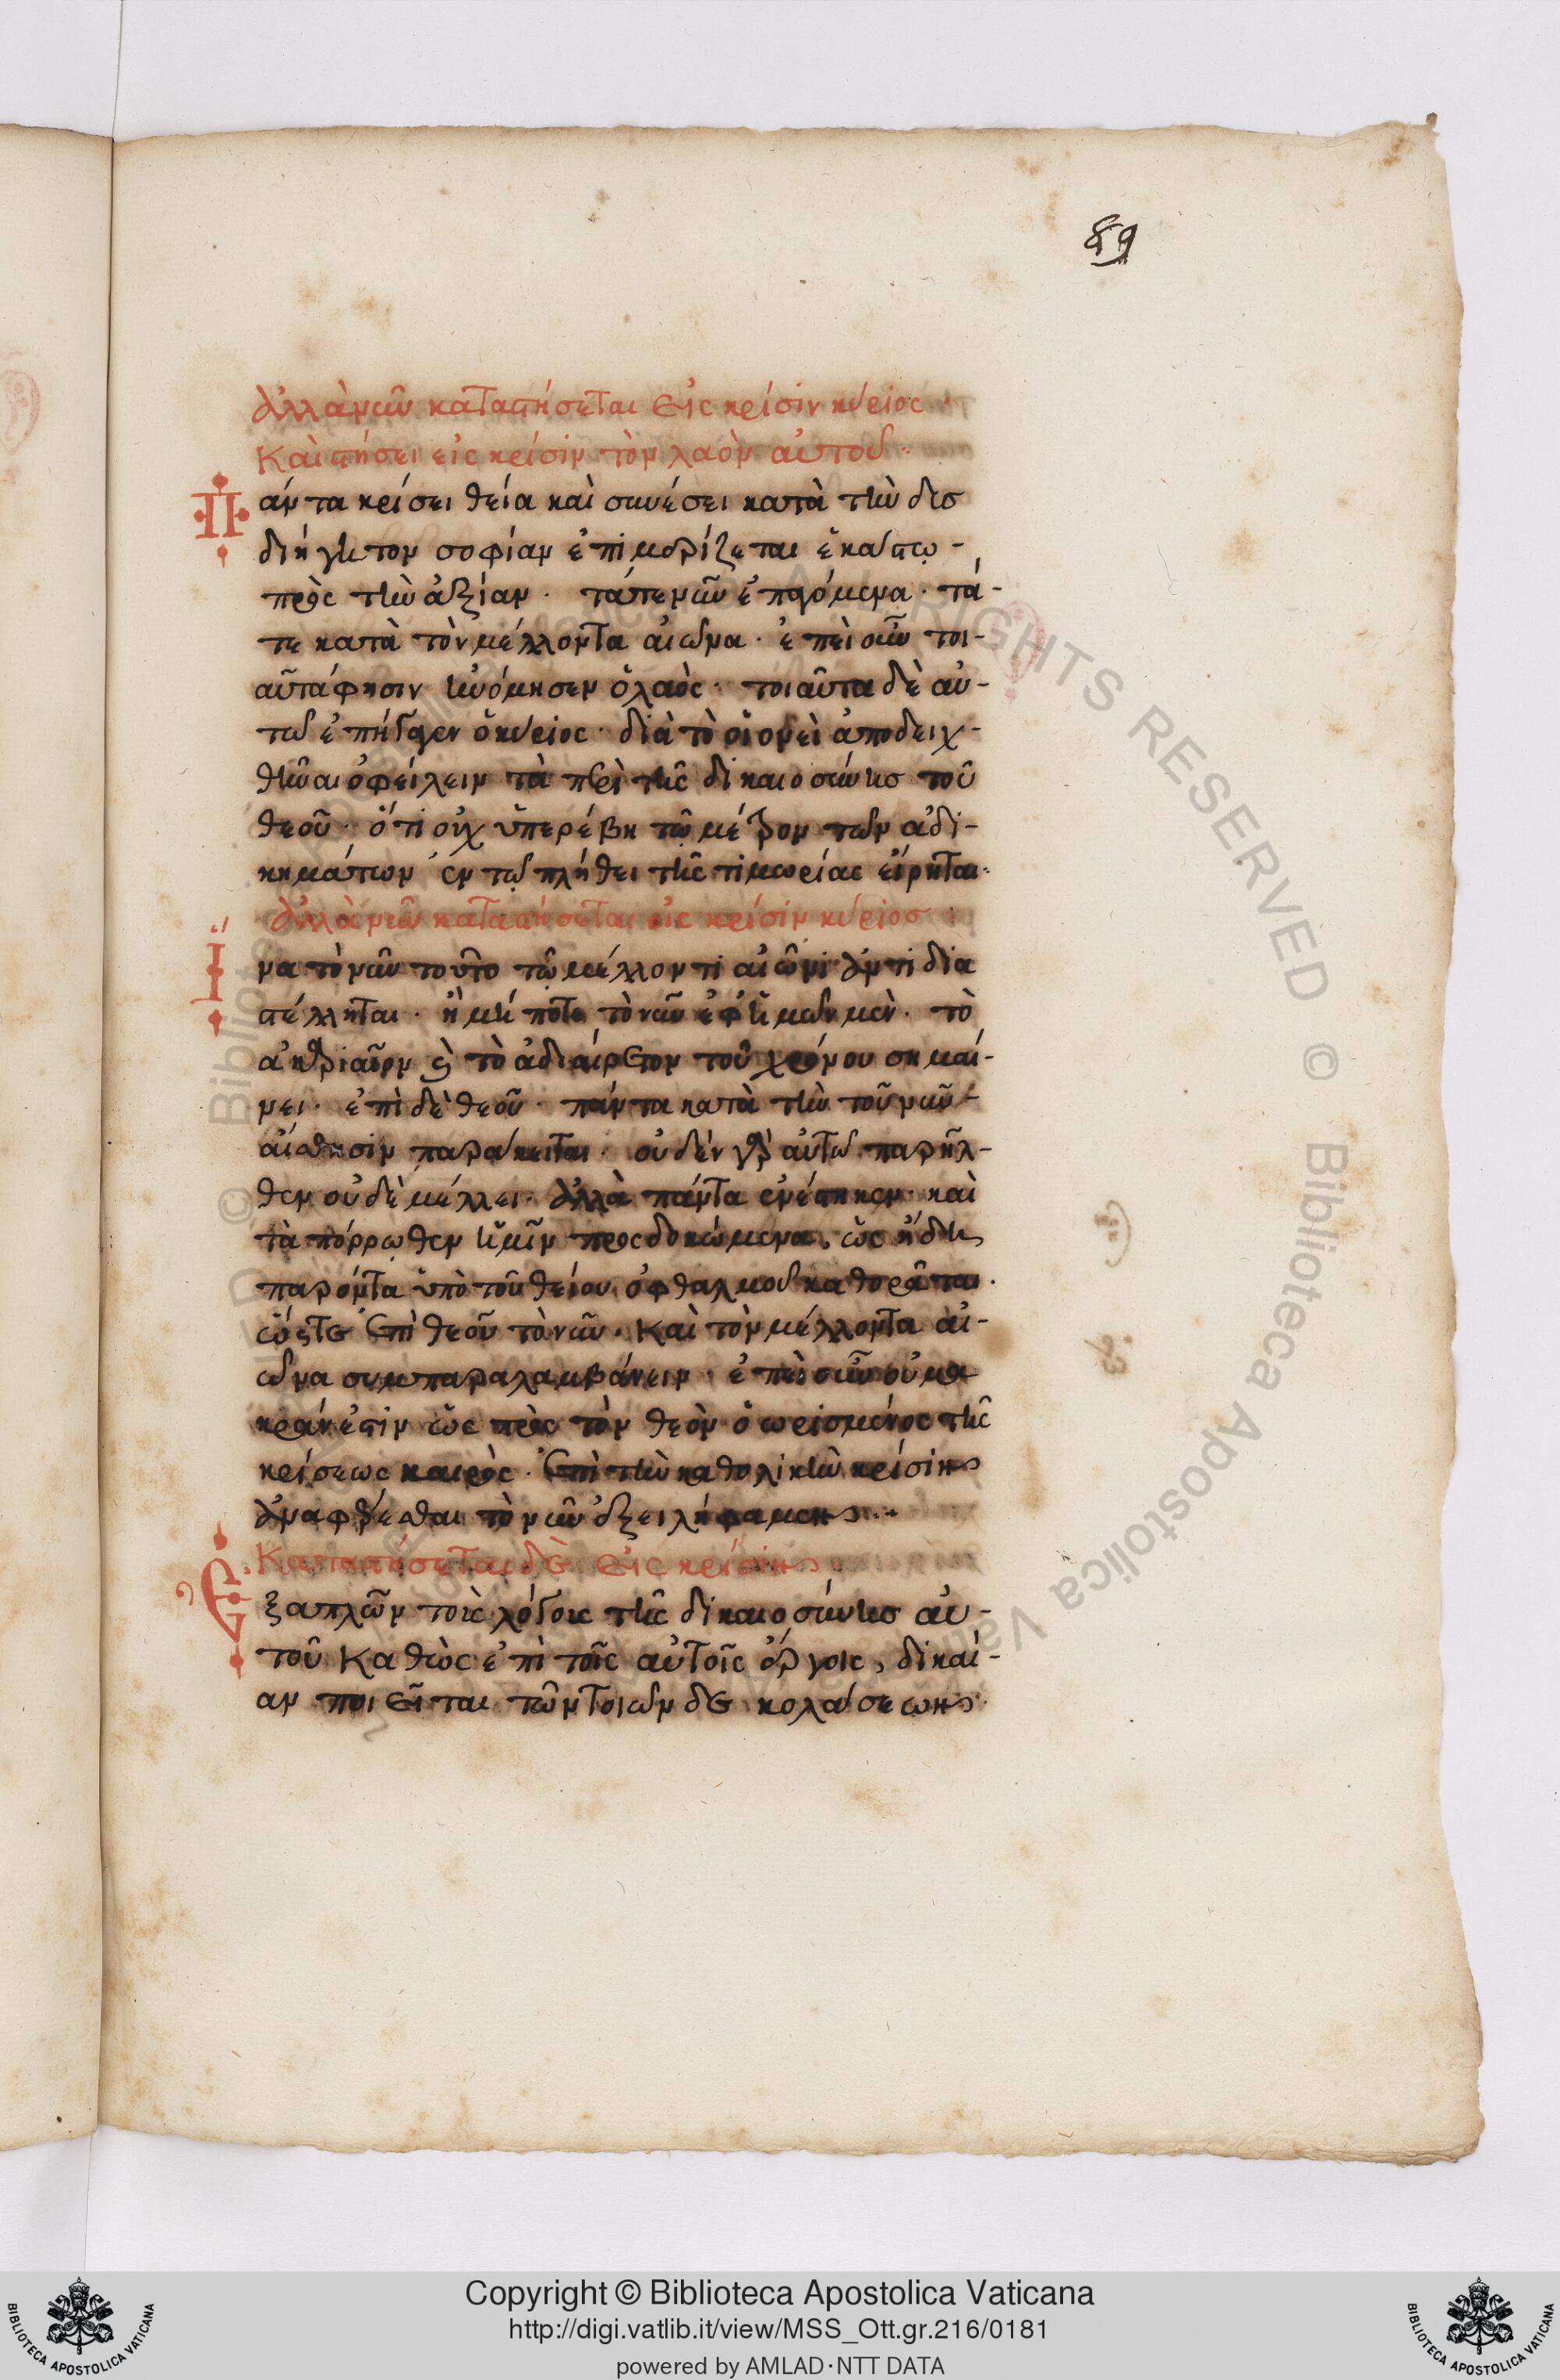 89
Ἀλλὰ νῦν καταστήσεται εἰς κρίσιν κύριος ·
Καὶ στήσει εἰς κρίσιν τὸν λαὸν αὐτοῦ ·
Πάντα κρίσει θεία καὶ συνέσει κατὰ τὴν δυσ
διήγητον σοφίαν ἐπιμερίζεται ἑκάστω -
πρὸς τὴν ἀξίαν · τάτε νῦν ἐπαγόμενα · τά-
τε κατὰ τὸν μέλλοντα αἰῶνα · ἐπεὶ οὖν τοι-
αῦτά φησιν ἠνόμησεν ὁ λαὸς · τοιαῦτα δὲ αὐ-
τῶ ἐπήγαγεν ὁ κύριος · διὰ τὸ οἱονεὶ ἀποδειχ-
θῆναι ὀφείλειν τὰ περὶ τῆς δικαιοσύνης τοῦ
θεοῦ · ὅτι οὐχ ὑπερέβη τῶ μέτρον τῶν ἀδι-
κημάτων ἐν τῶ πλήθει τῆς τιμωρίας εἴρηται ·
Ἀλλὰ νῦν καταστήσεται εἰς κρίσιν κύριος :
Ἵνα τὸ νῦν τοῦτο τῶ μέλλοντι αἰῶνι ἀντιδια
στέλληται · ἢ μή ποτε τὸ νῦν ἐφ ἡμῶν μὲν · τὸ
ἀκαριαῖον καὶ τὸ ἀδιαίρετον τοῦ χρόνου σημαί-
νει · ἐπὶ δὲ θεοῦ · πάντα κατὰ τὴν τοῦ νῦν -
αἴσθησιν παράκειται · οὐδὲν γὰρ αὐτῶ παρῆλ-
θεν οὐδὲ μέλλει · ἀλλὰ πάντα ἐνέστηκεν · καὶ
τὰ πόρρωθεν ἡμῖν προσδοκώμενα, ὡς ἤδη
παρόντα ὑπὸ τοῦ θείου ὀφθαλμοῦ καθορᾶται ·
ὥστε ἐπὶ θεοῦ τὸ νῦν · Καὶ τὸν μέλλοντα αἰ-
ῶνα συμπαραλαμβάνειν · ἐπεὶ οὖν οὐ μα
κράν ἐστιν ὡς πρὸς τὸν θεὸν ὁ ὡρισμένος τῆς
κρίσεως καιρὸς · Ἐπὶ τὴν καθολικὴν κρίσιν
ἀναφέρεσθαι τὸ νῦν ἐξειλήφαμεν ·
Καταστήσεται δὲ εἰς κρίσιν
Ἐξαπλῶν τοὶς λόγοις τῆς δικαιοσύνης αὐ-
τοῦ Καθὼς ἐπὶ τοῖς αὐτοῖς ἔργοις, δικαί-
αν ποιεῖται τῶν τοιῶν δε κολάσεων
Copyright © Biblioteca Apostolica Vaticana
http://digi.vatlib.it/view/MSS_Ott.gr.216/0181
powered by AMLAD·NTT DATA